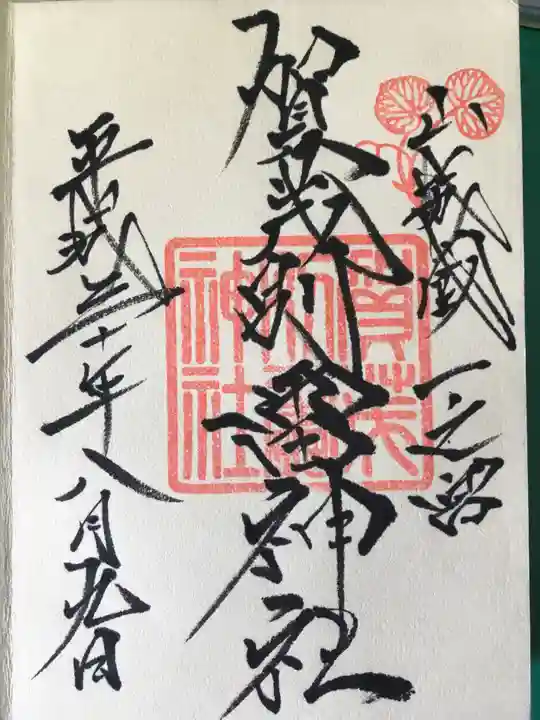 山城國一之宮
賀茂別雷神社
平成三十年八月九日
賀茂
別雷
神社